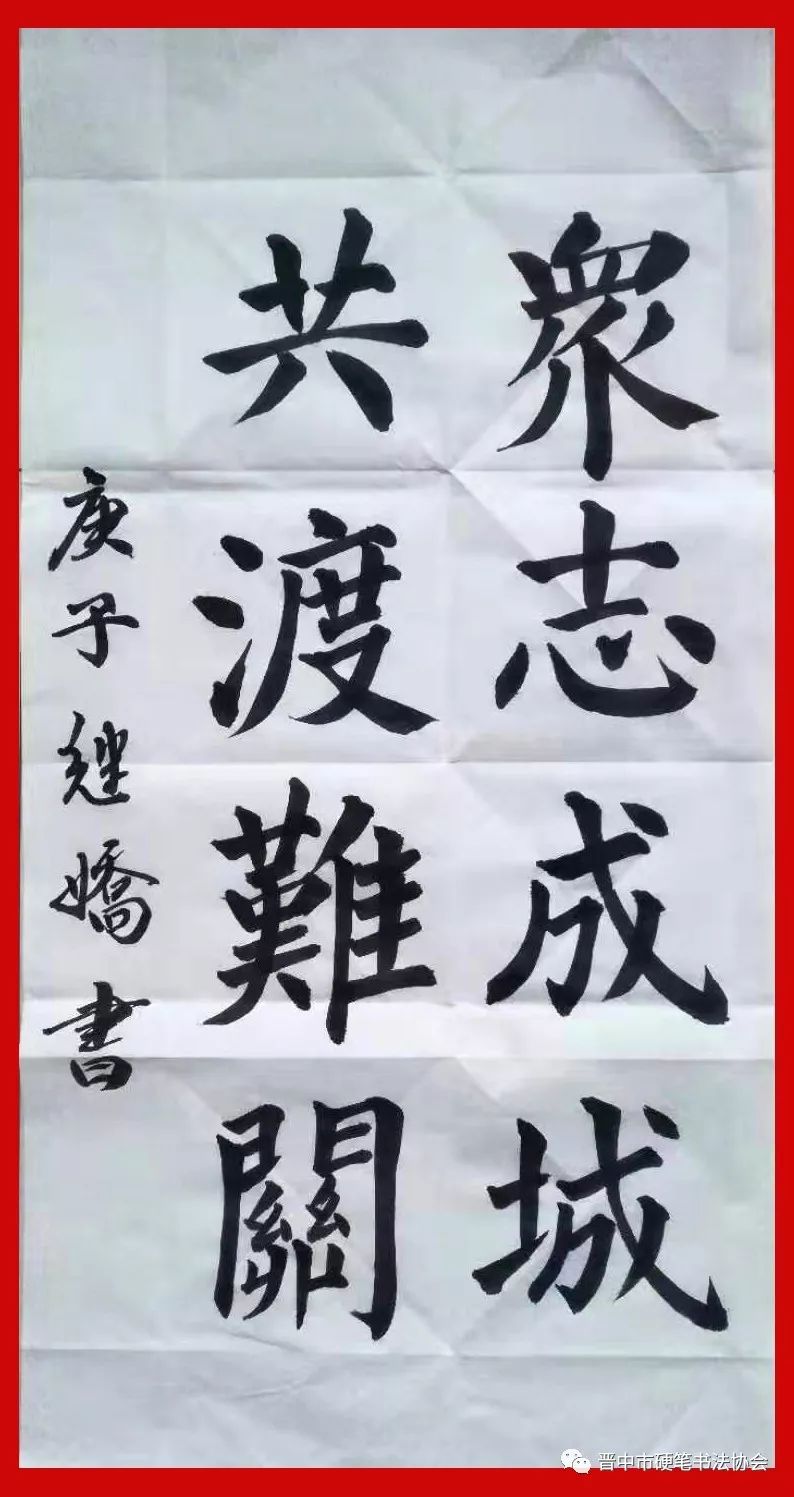 眾志成城
共渡難關
庚子繼嬌書
晋中市硬笔书法协会